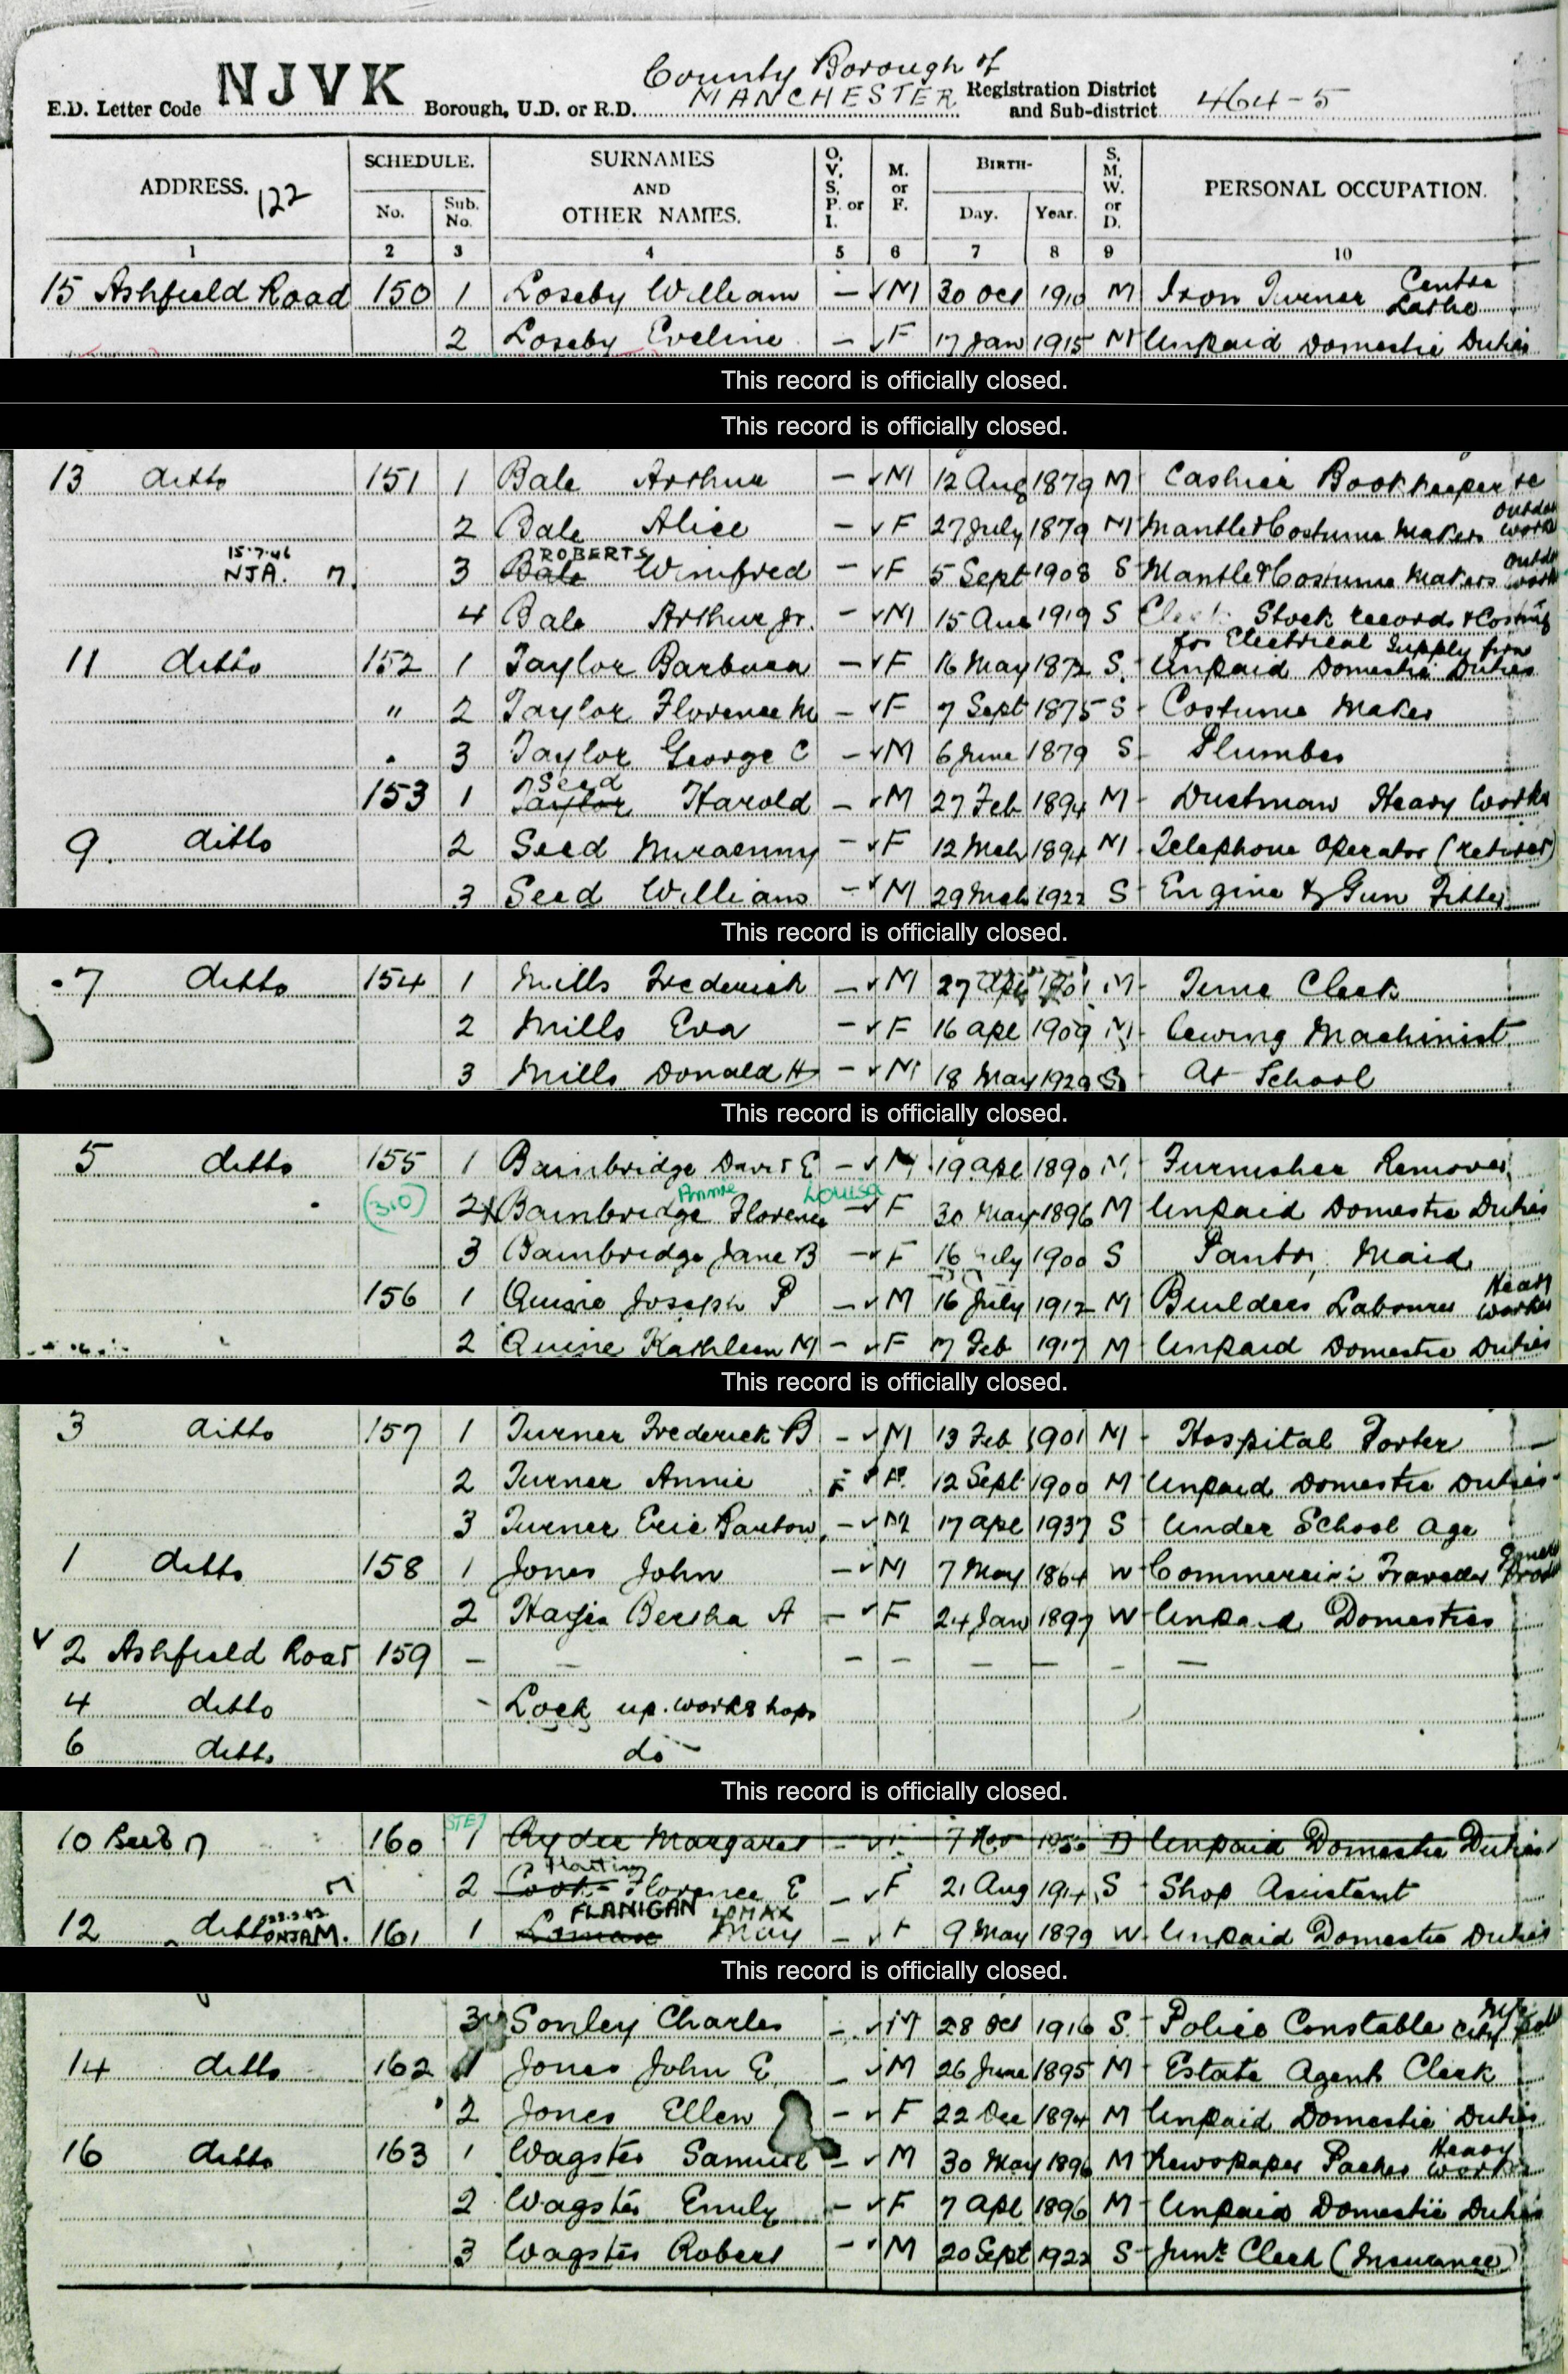 County Borough of
E.D. Letter Code NJVK Borough, U.D. or R.D. MANCHESTER Registration District and Sub-district 464-5
ADDRESS. 122 SCHEDULE. No. Sub. No. SURNAMES AND OTHER NAMES. O, V, S, P. or I. M. or F. BIRTH- Day. Year. S, M, W. or D. PERSONAL OCCUPATION.
1 2 3 4 5 6 7 8 9 10
15 Ashfield Road 150 1 Loseby William – ✓ M 30 Oct 1910 M Iron Turner Centre Lathe
2 Loseby Eveline – ✓ F 17 Jan 1915 M Unpaid Domestic Duties
This record is officially closed.
This record is officially closed.
13 ditto 151 1 Bale Arthur – ✓ M 12 Aug 1879 M Cashier Bookkeeper
2 Bale Alice – ✓ F 27 July 1879 M Mantle & Costume Makers Outdoor work
15.7.46 ROBERTS
NJA. 3 Bale Winifred – ✓ F 5 Sept 1908 S Mantle & Costume Makers Outdoor work
4 Bale Arthur Jr. – ✓ M 15 Aug 1919 S Clerk Stock records & Costing
for Electrical Supply firm
11 ditto 152 1 Taylor Barbara – ✓ F 16 May 1872 S. Unpaid Domestic Duties
" 2 Taylor Florence M – ✓ F 7 Sept 1875 S Costume Maker
3 Taylor George C – ✓ M 6 June 1879 S Plumber
Seed
153 1 Taylor Harold – ✓ M 27 Feb 1894 M Dustman Heavy Worker
9. ditto 2 Seed – ✓ F 12 Mch 1894 M Telephone Operator (retired)
3 Seed William – ✓ M 29 Mch 1922 S Engine & Gun Fitter
This record is officially closed.
7 ditto 154 1 Mills Frederick – ✓ M 27 Apl 1901 M Time Clerk
2 Mills Eva – ✓ F 16 Apl 1909 M Sewing Machinist
3 Mills Donald H – ✓ M 18 May 1929 S At School
This record is officially closed.
5 ditto 155 1 Bainbridge David E – ✓ M 19 Apl 1890 M Furnisher Remover
Annie Louisa
(310) 2 Bainbridge Florence – ✓ F 30 May 1896 M Unpaid Domestic Duties
3 Bainbridge Jane B – ✓ F 16 July 1900 S Pantry Maid
156 1 Quine Joseph P – ✓ M 16 July 1912 M Builders Labourer Heavy Worker
2 Quine Kathleen M – ✓ F 17 Feb 1917 M Unpaid Domestic Duties
This record is officially closed.
3 ditto 157 1 Turner Frederick B – ✓ M 13 Feb 1901 M Hospital Porter
2 Turner Annie F 12 Sept 1900 M Unpaid Domestic Duties
3 Turner Eric Barlow – ✓ M 17 Apl 1937 S Under School Age
1 ditto 158 1 Jones John – ✓ M 7 May 1864 W Commercial Traveller
2 Bertha A – ✓ F 24 Jan 1897 W Unpaid Domestics
✓ 2 Ashfield Road 159 – – – – – – – –
4 ditto - Lock up workshops
6 ditto do
This record is officially closed.
10 160 1 Ryder Margaret – ✓ 7 Nov D Unpaid Domestic Duties
2 Cook Florence E – ✓ F 21 Aug 1914 S Shop Assistant
FLANIGAN LOMAX
12 ditto 161 1 Lomax May – ✓ F 9 May 1899 W Unpaid Domestic Duties
This record is officially closed.
3 Sonley Charles – ✓ M 28 Oct 1916 S. Police Constable
14 ditto 162 1 Jones John E – ✓ M 26 June 1895 M Estate Agents Clerk
2 Jones Ellen – ✓ F 22 Dec 1894 M Unpaid Domestic Duties
16 ditto 163 1 Wagster Samuel – ✓ M 30 May 1896 M Newspaper Packer Heavy Worker
2 Wagster Emily – ✓ F 7 Apl 1896 M Unpaid Domestic Duties
3 Wagster Robert – M 20 Sept 1922 S Junr Clerk (Insurance)